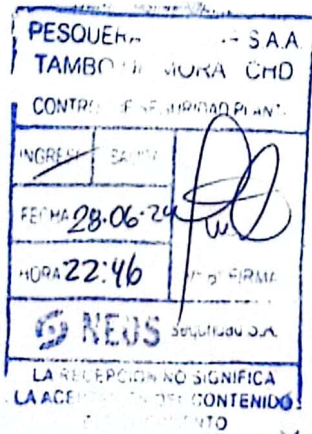 PESQUERA S.A.A.
TAMBO DE MORA CHD
CONTROL DE SEGURIDAD PLANTA
INGRESO SALIDA
FECHA 28.06.24
HORA 22:46 FIRMA
NEOS Seguridad S.A.
LA RECEPCION NO SIGNIFICA
LA ACEPTACION DEL CONTENIDO